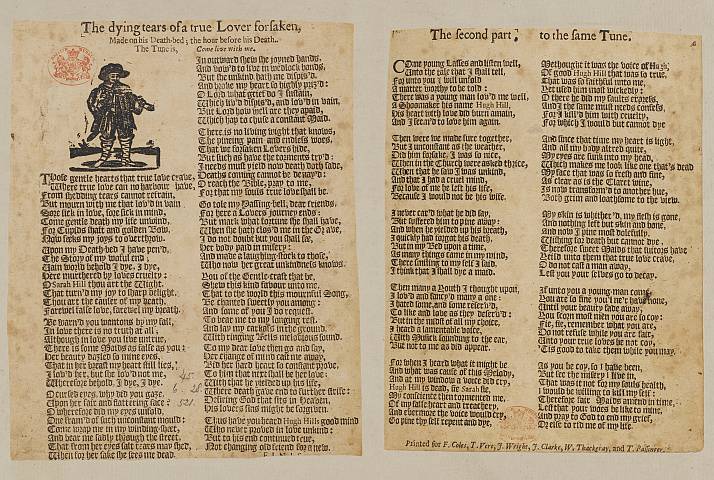 The dying tears of a true Lover forsaken,
Made on his Death-bed; the hour before his Death.
The Tune is, Come live with me.
Those gentle hearts that true love crave,
Where true love can no harbour have,
From shedding tears cannot refrain
But mourn with me that lov'd in vain
Sore sick in love, sore sick in mind,
Come gentle death my life unwind,
For Cupids shaft and golden Bow,
Now seeks my joys to overthrow.
Upon my Death-bed I have pen'd,
The Story of my woful end;
Vain world behold I dye, I dye,
Here murthered by loves cruelty;
O Sarah Hill thou art the Wight,
That turn'd my joy to sharp delight.
Thou art the causer of my death,
Farewel false love, farewel my breath.
Be warn'd you wantons by my fall,
In love there is no truth at all;
Although in love you live untrue,
There is some Maids as false as you:
Her beauty dazled so mine eyes,
That in her breast my heart still lies,
I lov'd her, but she lov'd not me,
Wherefore behold, I dye, I dye.
O cursed eyes, why did you gaze
Upon her fair and flattering face?
O wherefore did my eyes unfold,
Come wrap me in my winding-sheet,
And bear me sadly through the street,
That from her eyes salt tears may shed,
When for her sake she sees me dead.
In outward shew she joyned hands,
And vow'd to live in wedlock bands,
But the unkind hath me despis'd,
And broke my heart so highly priz'd:
O Lord what grief do I sustain,
Which liv'd despis'd, and lov'd in vain,
But Lord how well are they apaid,
Which hap to chuse a constant Maid.
There is no living wight that knows,
The pining pain and endless woes,
That we forsaken Lovers bide,
But such as have the torments try'd:
I needs must yield now death doth sade,
Deaths coming cannot be denay'd:
O reach the Bible, pray to me,
For that my souls true love shall be.
Go tole my Passing-bell, dear friends,
For here a Lovers journey ends:
But mark what fortune she shall have,
When she hath clos'd me in the Grave,
I do not doubt but you shall see,
her body paid in misery:
And made a laughing-stock to those,
Who now her great unkindness knows.
You of the Gentle-craft that be,
Shew this kind favour unto me,
That to the world this mournful Song,
Be chanted sweetly you among:
And some of you I do request,
To bear me to my longing rest.
And lay my carkass in the ground,
With ringing Bells melodious sound.
To my dear love then go and say,
Her change of mind cast me away,
Bid her hard heart to constant prove,
To him that next shall be her love:
With that he yielded up his life,
Where death gave end to further strife:
Desiring God that sits in Heaven,
His lovers sins might be forgiven.
Thus have you heard Hugh Hills good mind
Who never proved in love unkind:
But to his end continued true,
Not changing old friend for a new.
The second part, to the same Tune.
COme young Lasses and listen well,
Unto the tale that I shall tell,
For unto you I will unfold
A matter worthy to be told:
There was a young man lov'd me well,
A Shoomaker his name Hugh Hill,
His heart with love did burn amain,
And I seem'd to love him again.
Then were we made sure together,
But I unconstant as the weather,
Did him forsake, I was so nice,
When in the Church were asked thrice,
When that he saw I was unkind,
And that I had a cruel mind,
For love of me he left his life,
Because I would not be his wife.
I never car'd what he did say,
But suffered him to pine away:
And when he yielded up his breath,
I quickly had forgot his death,
But in my Bed upon a time,
As many things came in my mind,
There smiling to my self I said,
I think that I shall dye a maid.
Then many a Youth I thought upon,
I lov'd and fancy'd many a one:
I hated some, and some deserv'd,
To like and love as they deserv'd:
But in the midst of all my choice,
I heard a lamentable voice,
With Musick sounding to the ear,
But not to me as did appear.
For when I heard what it might be
And what was cause of this Melody,
And at my window a voice did cry,
Hugh Hill is dead, fie Sarah fie,
My conscience then tormented me,
Of my false heart and treachery,
And evermore the voice would cry,
Go pine thy self repent and dye.
Methought it was the voice of Hugh,
Of good Hugh Hill that was so true,
That was so faithful unto me,
Yet used him most wickedly:
O there he did my faults express,
And I the same must needs confess,
For I kill'd him with cruelty,
For which I would but cannot dye
And since that time my heart is light,
And all my body altred quite,
My eyes are sunk into my head,
Which makes me look like one that's dead
My face that was so fresh and fair,
As clear as is the Claret wine,
Is now transform'd to another hue,
Both grim and loathsome to the view.
My skin is whither'd, my flesh is gone,
And nothing left but skin and bone,
And now I pine most dolefully,
Wishing for death but cannot dye.
Therefore sweet Maids that suitors have
Yeild unto them that true love crave,
Do not cast a man away,
Lest you your selves go to decay.
If unto you a young-man come,
You are so fine you'll ne'r have none,
Until your beauty fade away,
You scorn most men you are so coy:
Fie, fie, remember what you are,
Do not refuse while you are fair,
Unto your true loves be not coy,
'Tis good to take them while you may.
As you be coy, so I have been,
But fie the misery I live in,
That was it not for my souls health,
I would be willing to kill my self:
Therefore fair Maids amend in time,
Lest that your voices be like to mine,
And pray to God to end my grief,
Or else to rid me of my life.
Printed for F. Coles, T. Vere, J. Wright, J. Clarke, W. Thackeray, and T. Passinger.